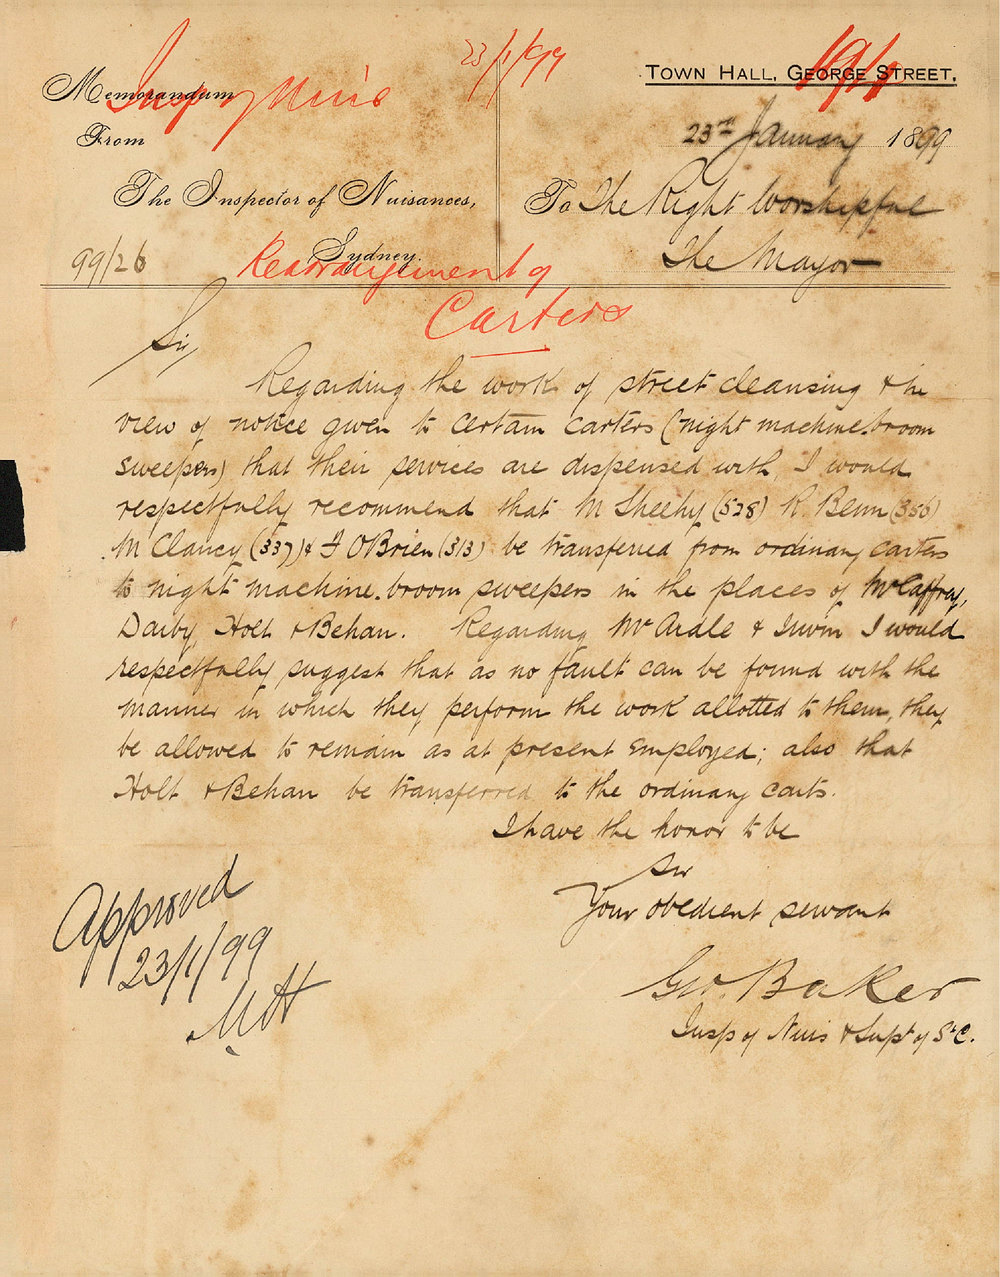 Insp of Nuis 23/1/99
Memorandum
From
The Inspector of Nuisances,
Sydney.
99/26
TOWN HALL, GEORGE STREET,
23rd January 1899
To The Right Worshipful
The Mayor
Rearrangement of
Carters
Sir,
Regarding the work of street cleansing & in
view of notice given to certain carters (night machine broom
sweepers) that their services are dispensed with, I would
respectfully recommend that M Sheehy (528) R. Benn (356)
M Clancy (337) & J O'Brien (313) be transferred from ordinary carters
to night machine broom sweepers in the places of McCaffrey,
Darby, Holt & Behan. Regarding McArdle & Irwin I would
respectfully suggest that as no fault can be found with the
manner in which they perform the work allotted to them, they
be allowed to remain as at present employed; also that
Holt & Behan be transferred to the ordinary carts.
I have the honor to be
Sir
Your obedient servant
Geo. Baker
Insp of Nuis & Supt of St C.
Approved
23/1/99
MH